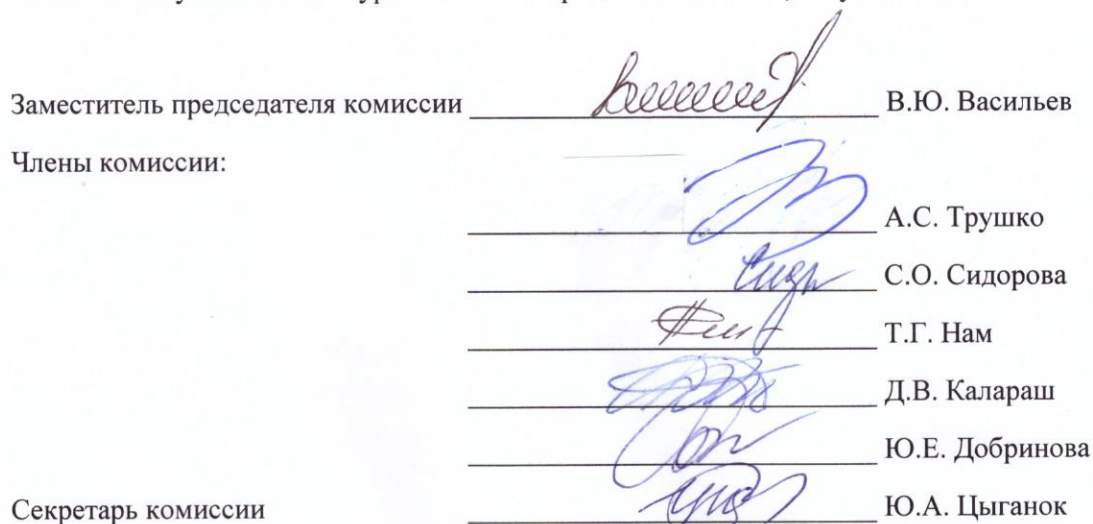 Заместитель председателя комиссии В.Ю. Васильев
Члены комиссии:
А.С. Трушко
С.О. Сидорова
Т.Г. Нам
Д.В. Калараш
Ю.Е. Добринова
Секретарь комиссии Ю.А. Цыганок